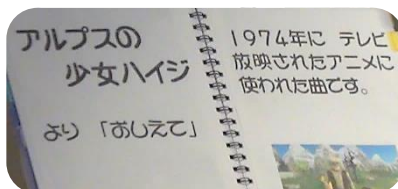 アルプスの
少女ハイジ
より 「おしえて」
1974年に テレビ
放映されたアニメに
使われた曲です。